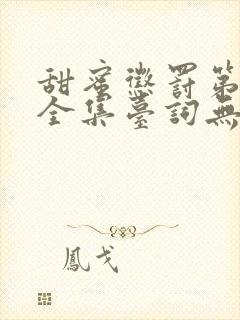 甜蜜懲罰第
全集臺詞無
鳳戈